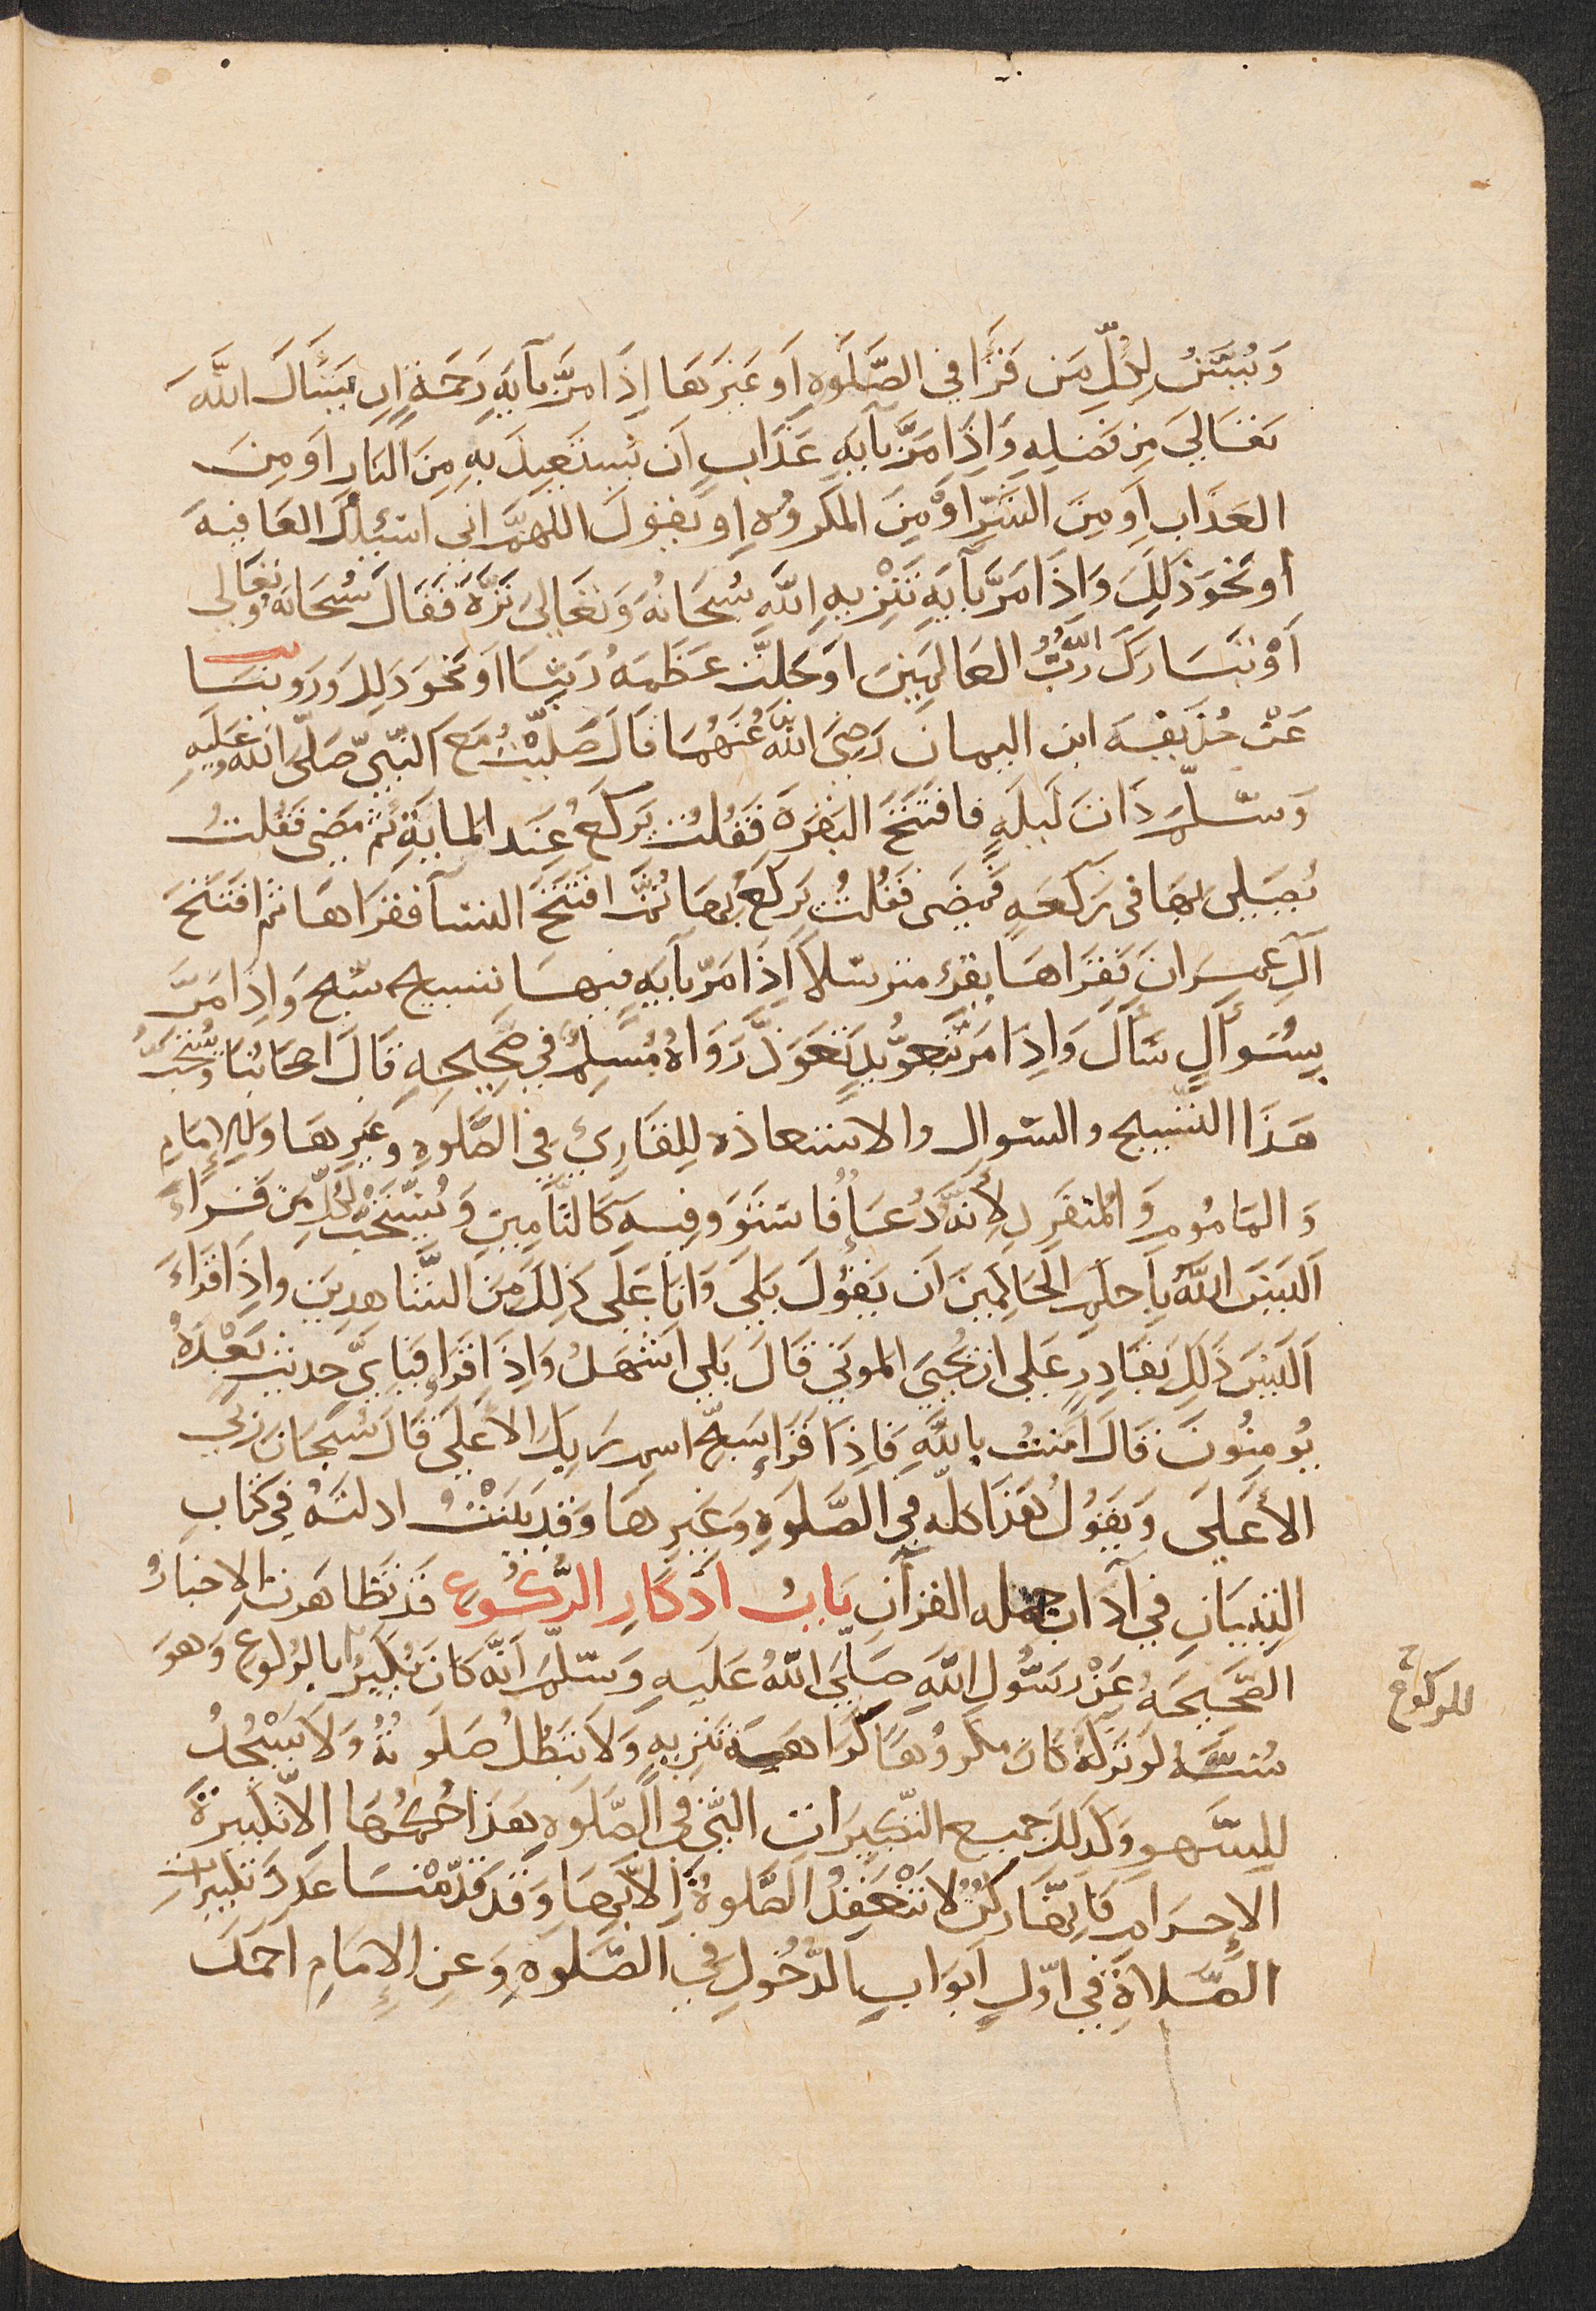 وَيُسَنُّ لِكُلِّ مَن قَرَأَ في الصَّلَوةِ اَو غَيرَهَا إِذَا مَرَّ بآيةِ رَحمَةٍ ان يَسْأَلَ اللَّهَ
تعَالىَ مِن فَضلِهِ وَاِذَا مَرَّ بآيَةِ عَذَابٍ اَن يَستَعِيذَ بِهِ مِنَ النَارِ اَو مِنَ
العَذَابِ اَو مِنَ الشَرِّ اَوْ مِنَ المَكرُوهِ او يَقولَ اللهُمَّ اني اَسْئلك العَافيةَ
او نحَوَ ذَلِكَ وَاِذَا مَرَّ بآيَةِ تَنْزِيهِ اللَّهِ سُبحَانَهُ وَتَعَالىَ نَزَّهَ فَقَالَ سُبحَانَهُ وتعَالى
اَوْ تبَارَكَ اللهُ رَبُّ العَالَمِينَ او جَلَّت عَظَمَةُ رَبِّنَا اَو نحوَ ذلِكَ وَرَوينَا
عَنْ حُذَيفَةَ ابن اليمان رَضِيَ اللَّهُ عَنهُمَا قَالَ صَلَّيْتُ مَعَ النَّبيِّ صَلَّى اللَّه عَلَيهِ
وَسَلَّمَ ذَاتَ لَيلَةٍ فافتَتَحَ البَقرَة فَقُلتُ يَركَعُ عِندَ المايَةِ ثمَّ مَضى فَقُلتُ
يُصَلي بِهَا في رَكعَةٍ فَمضَى فَقُلتُ يَركَعُ بِهَا ثُمَّ افتَتَحَ النسَآ فقرَاهَا ثم افتَتَحَ
آلَ عِمرَانَ فَقَرَاهَا يقرَؤ مترسّلا اِذَا مَرّ بآيَةٍ فيهَا تسبيح سَبَّح وَاِذَا مَرَّ
بِسُوَآلٍ سَأَلَ وَاِذَا مَرَّ بتعوُّذٍ تَعَوَذَ رَوَاهُ مُسْلِمٌ في صَحِيحِهِ قَالَ اصحَابُنَا وَيُسْتَحَبُّ
هَذَا التَسْبيح والسّوال والاستعاذه لِلقَارِئ فِي الصَّلَوةِ وَغَيرِهَا وَلِلإِمَامِ
وَالمَامُومِ وَالمُنفَرِدِ لِأَنَّهُ دُعَاءٌ فاستَوَوا فيه كَالتَّامِينِ وَيُسْتَحَبُّ لِكُلِّ مَن قَرَاءَ
اَلَيسَ اللَّهُ بِاَحكَمِ الحَاكِمينَ اَن يَقُولَ بَلَى وَانَا عَلَى ذَلِكَ مِنَ الشَّاهِدِينَ وَاِذَا قَرَاءَ
اَلَيْسَ ذَلِكَ بِقَادِرٍ عَلى ان يُحيِيَ المَوتى قَالَ بَلى اَشهَدُ وَاِذَا قَرَا فَبِايِّ حَديثٍ بَعْدَهُ
يُومِنُونَ قَالَ آمَنتُ بِاللَّهِ فَاِذَا قَرَا سَبِّح اسمَ رَبِكَ الأَعلىَ قَالَ سُبحَانَ رَبي
الأَعلَى وَيَقُولُ هَذَا كله في الصَّلَوةِ وَغَيرِهَا وَقَد بَيَنْتُ ادلتَهُ في كتَابِ
التِبيَانِ في آدَاب حمله القرآن بَابُ اذكَارِ الرُّكُوعِ قَد تظَاهَرت الاخبَارُ
الصَّحِيحَةُ عَنْ رَسُولِ اللَّهِ صَلَّى اللَّهُ عَلَيهِ وَسَلَّمَ اَنَّه كَانَ يُكَبِرُ بالركوع وَهوَ
للركوع
سُنَّةٌ لَو تَرَكَهُ كانَ مكروُهًا كَرَاهَة تَنزِيهٍ وَلا تَبطُلُ صَلَوتُهُ وَلا يَسْجُدُ
لِلسَّهوِ وَكَذَلِكَ جميع التّكبيرَات التي في الصَّلَوةِ هَذَا حُكمُهَا الاّ تكبِيرةَ
الإِحرَامِ فَاِنَّهَا رُكنٌ لا تَنْعَقِدُ الصَّلَوةُ اِلاَّ بِهَا وَقَد قَدَّمْنَا عَدَدَ تكبيرَاتِ
الصَّلاةِ في اوّلِ اَبوَابِ الدُخُولِ في الصَّلوةِ وَعنِ الإِمَامِ احمَدَ